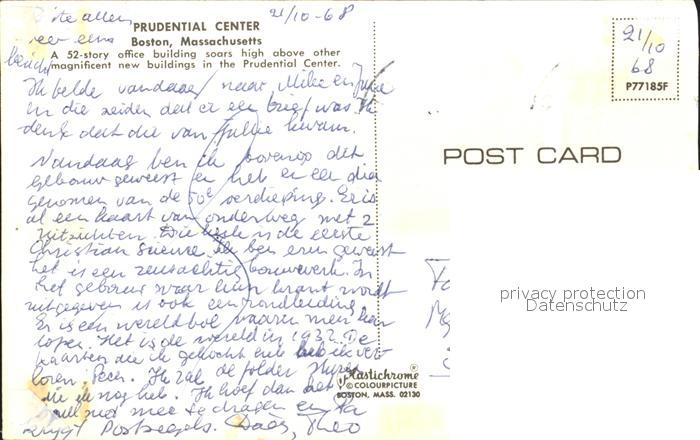 21/10-68
PRUDENTIAL CENTER
Boston, Massachusetts
A 52-story office building soars high above other
magnificent new buildings in the Prudential Center.
allen
weer eens
bericht
Ik belde vandaag naar en
en die zeiden dat er een brief was. Ik
denk dat die van Jullie kwam.
Vandaag ben ik bovenop dit
gebouw geweest en heb er een dia
genomen van de 50e verdieping. Er is
al een kaart van onderweg met 2
uitzichten. Die is de eerste
Christian Science. Ik ben erin geweest
het is een reusachtig bouwwerk. In
het gebouw waar hun krant wordt
uitgegeven is ook een rondleiding.
Er is een wereldbol waarin men kan
lopen. Het is de wereld in 1932. De
kaarten die ik gekocht heb ik ver-
loren. Pech. Ik zal de folder
die ik nog heb. Ik hoef dan het
niet mee te dragen en Pa
krijgt Postzegels. Daag, Theo
21/10
68
P77185F
POST CARD
privacy protection
Datenschutz
Plastichrome
® COLOURPICTURE
BOSTON, MASS. 02130